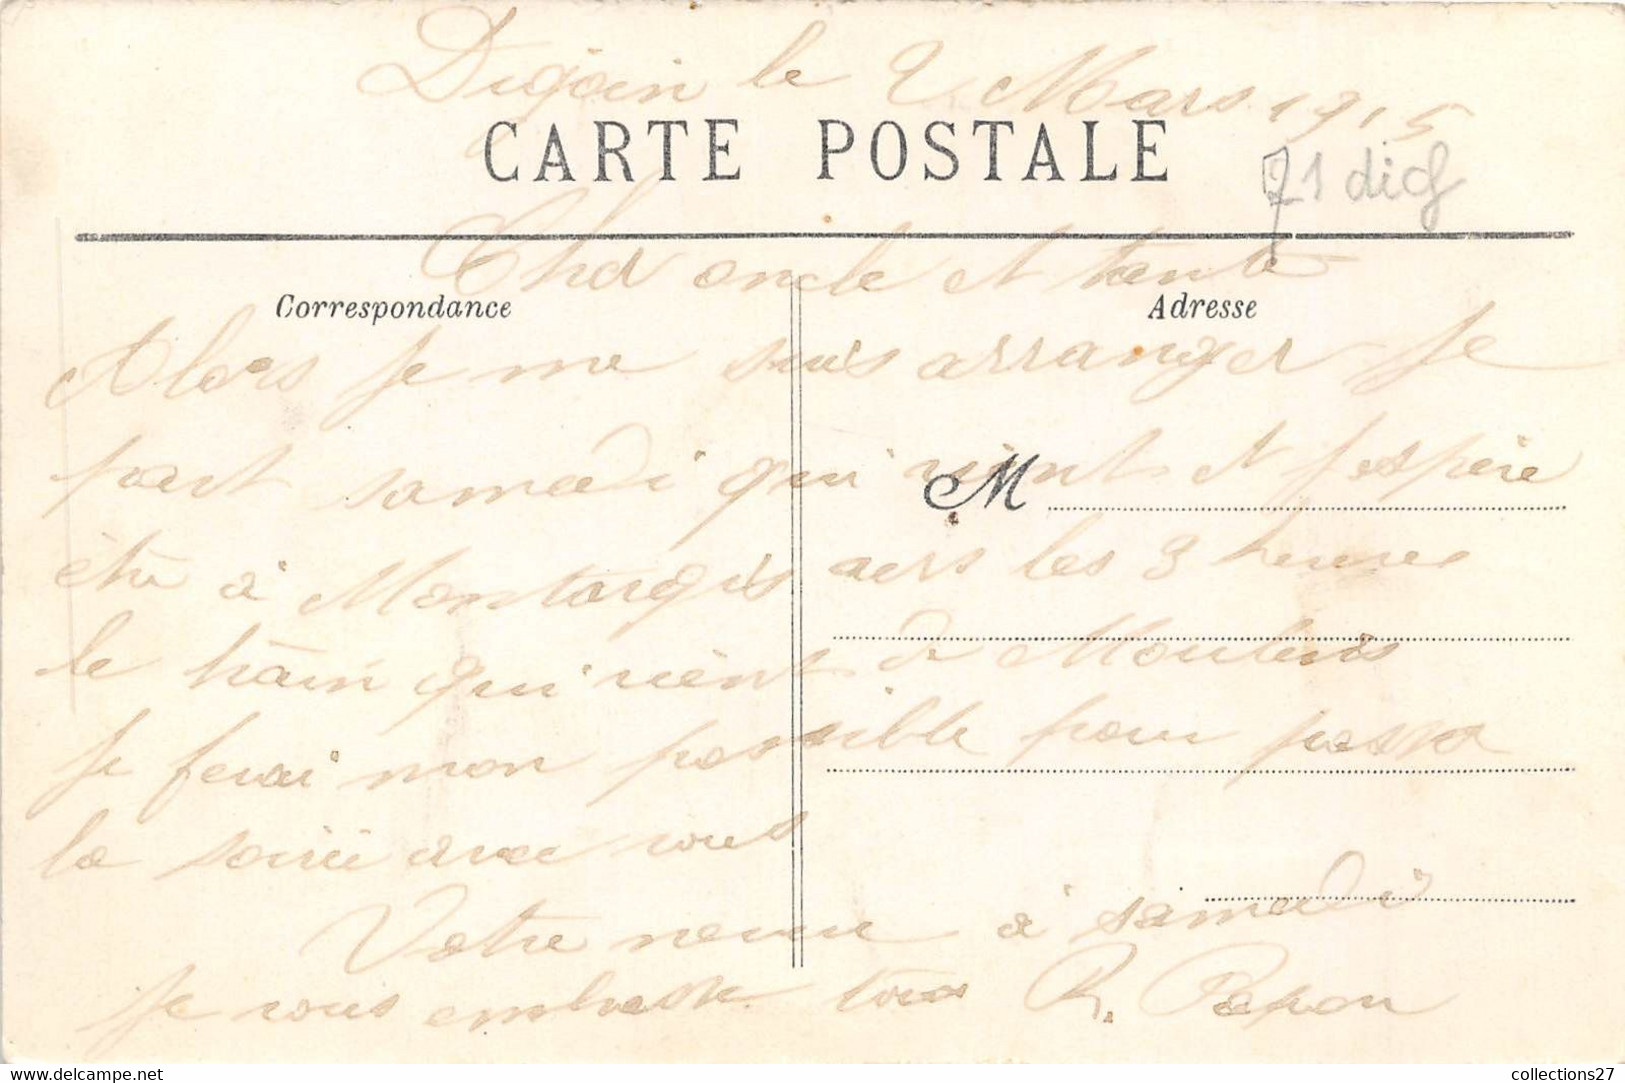 Digoin le 2 Mars 1915
CARTE POSTALE
71 dig
Chd oncle et tante
Correspondance
Adresse
Alors je me suis arranger je
part samedi qui vient et j'espère
M
être à Montargis vers les 3 heures
le train qui vient de Moulins
je ferai mon possible pour passer
la soirée avec vous
Votre neveu à samedi
je vous embrasse tous R. Papon
collections27